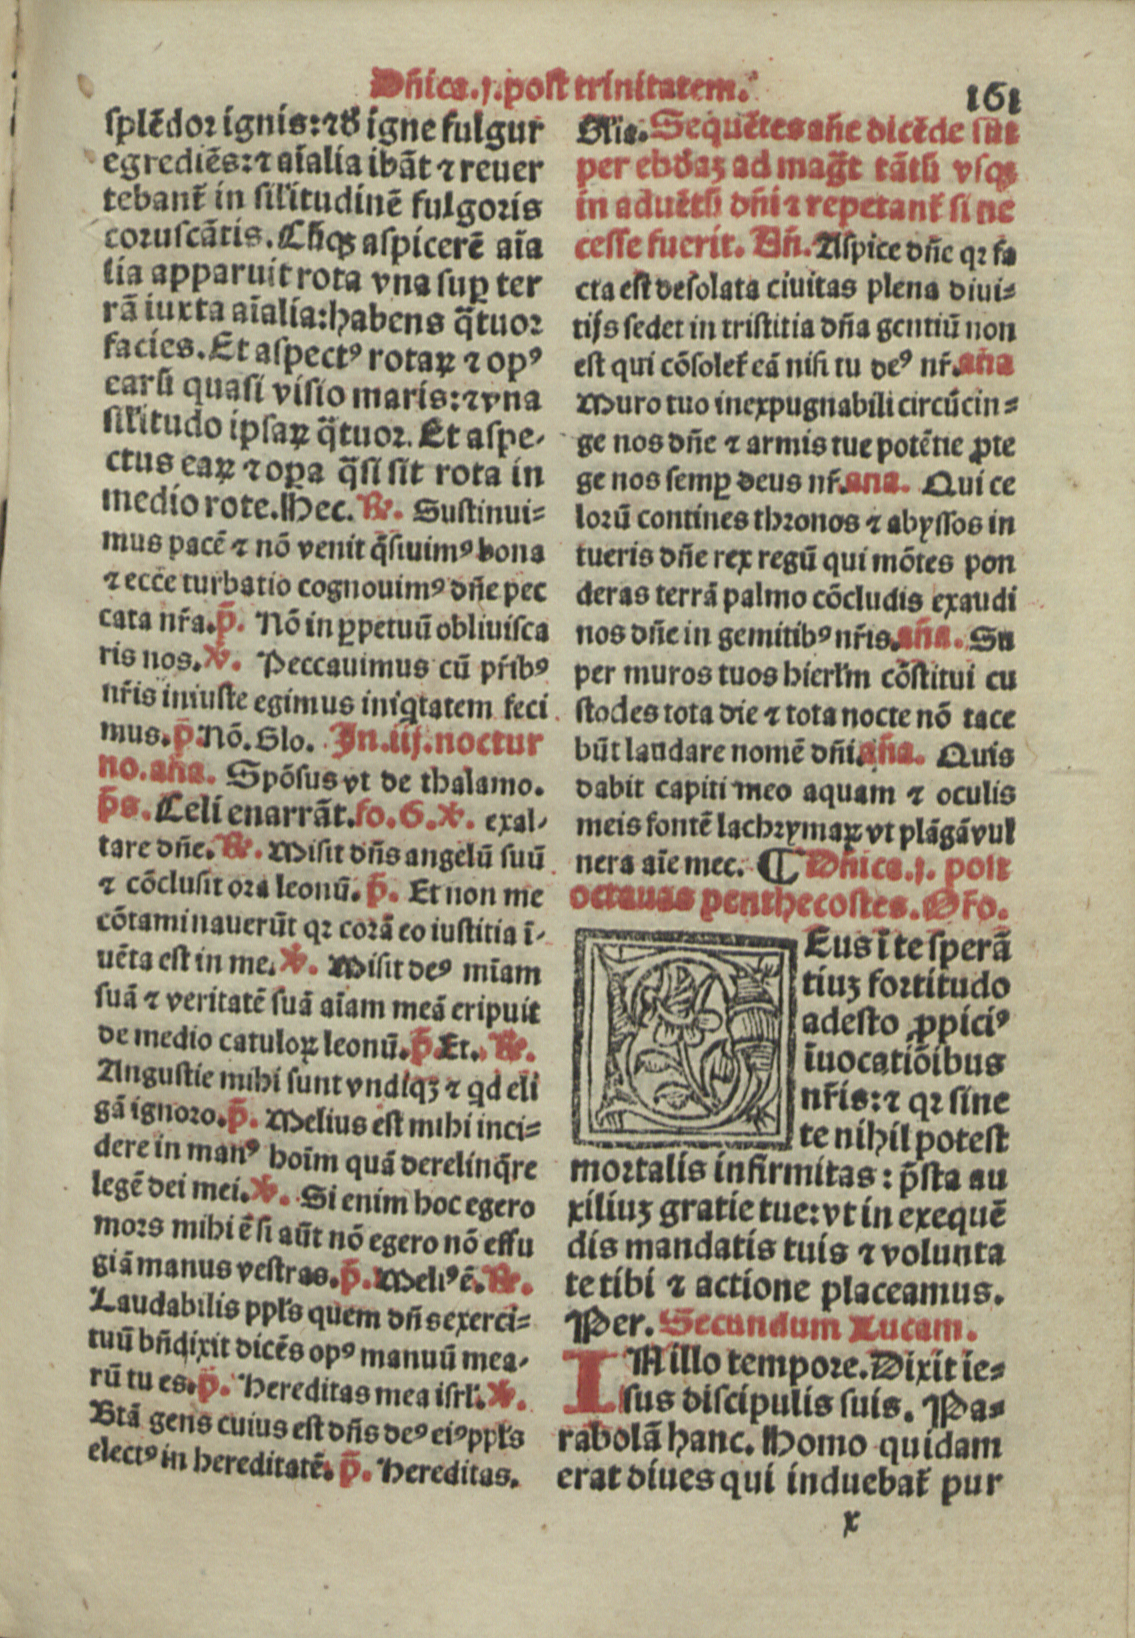 Dñica.j.post trinitatem.
161
splẽdor ignis:⁊ d̕ igne fulgur
egrediẽs:⁊ aĩalia ibãt ⁊ reuer
tebant̃ in sił'itudinẽ fulgoris
coruscãtis. Cũqꝫ aspicerẽ aĩa
lia apparuit rota vna suꝑ ter
rã iuxta aĩalia:habens q̃tuor
facies. Et aspectꝰ rotaꝝ ⁊ opꝰ
earũ quasi visio maris:⁊ vna
sił'itudo ipsaꝝ q̃tuor. Et aspe-
ctus eaꝝ ⁊ oꝑa q̃si sit rota in
medio rote. Hec. ℟. Sustinui=
mus pacẽ ⁊ nõ venit q̃siuimꝰ bona
⁊ ecce turbatio cognouimꝰ dñe pec
cata nr̃a. p̃. Nõ in ꝑpetuũ obliuisca
ris nos. ℣. Peccauimus cũ pr̃ibꝰ
nr̃is iniuste egimus iniq̃tatem feci
mus. p̃. Nõ. Glo. In.iij.noctur
no. aña. Spõsus vt de thalamo.
p̃s. Celi enarrãt. fo.6. ℣. exal-
tare dñe. ℟. Misit dñs angelũ suũ
⁊ cõclusit ora leonũ. p̃. Et non me
cõtaminauerũt qꝛ corã eo iustitia ĩ-
uẽta est in me. ℣. Misit deꝰ mĩam
suã ⁊ veritatẽ suã aĩam meã eripuit
de medio catuloꝝ leonũ. p̃. Et. ℟.
Angustie mihi sunt vndiqꝫ ⁊ qd eli
gã ignoro. p̃. Melius est mihi inci=
dere in manꝰ hoĩm quã derelinq̃re
legẽ dei mei. ℣. Si enim hoc egero
mors mihi ẽ si aũt nõ egero nõ effu
giã manus vestras. p̃. Meliꝰ ẽ. ℟.
Laudabilis ppl̃s quem dñs exerci=
tuũ bñdixit dicẽs opꝰ manuũ mea-
rũ tu es. p̃. Hereditas mea isrł. ℣.
Btã gens cuius est dñs deꝰ eiꝰ ppl̃s
electꝰ in hereditatẽ. p̃. Hereditas.
Alia. Sequẽtes añe dicẽde sũt
per ebdaꝫ ad mag̃t tãtũ vsqꝫ
in aduẽtũ dñi ⁊ repetant̃ si ne
cesse fuerit. Añ. Aspice dñe qꝛ fa
cta est desolata ciuitas plena diui=
tijs sedet in tristitia dña gentiũ non
est qui cõsolet̃ eã nisi tu deꝰ nr̃. aña
Muro tuo inexpugnabili circũcin=
ge nos dñe ⁊ armis tue potẽtie ꝓte
ge nos semꝑ deus nr̃. ana. Qui ce
lorũ contines thronos ⁊ abyssos in
tueris dñe rex regũ qui mõtes pon
deras terrã palmo cõcludis exaudi
nos dñe in gemitibꝰ nr̃is. aña. Su
per muros tuos hierl̃m cõstitui cu
stodes tota die ⁊ tota nocte nõ tace
bũt laudare nomẽ dñi. aña. Quis
dabit capiti meo aquam ⁊ oculis
meis fontẽ lachrymaꝝ vt plãgã vul
nera aĩe mee. ¶ Dñica.j. post
octauas penthecostes. Or̃o.
Eus ĩ te sperã
tiuꝫ fortitudo
adesto ꝓpiciꝰ
ĩuocatiõibus
nr̃is:⁊ qꝛ sine
te nihil potest
mortalis infirmitas: p̃sta au
xiliuꝫ gratie tue:vt in exequẽ
dis mandatis tuis ⁊ volunta
te tibi ⁊ actione placeamus.
Per. Secundum Lucam.
IN illo tempore. Dixit ie=
sus discipulis suis. Pa=
rabolã hanc. Homo quidam
erat diues qui induebat̃ pur
x